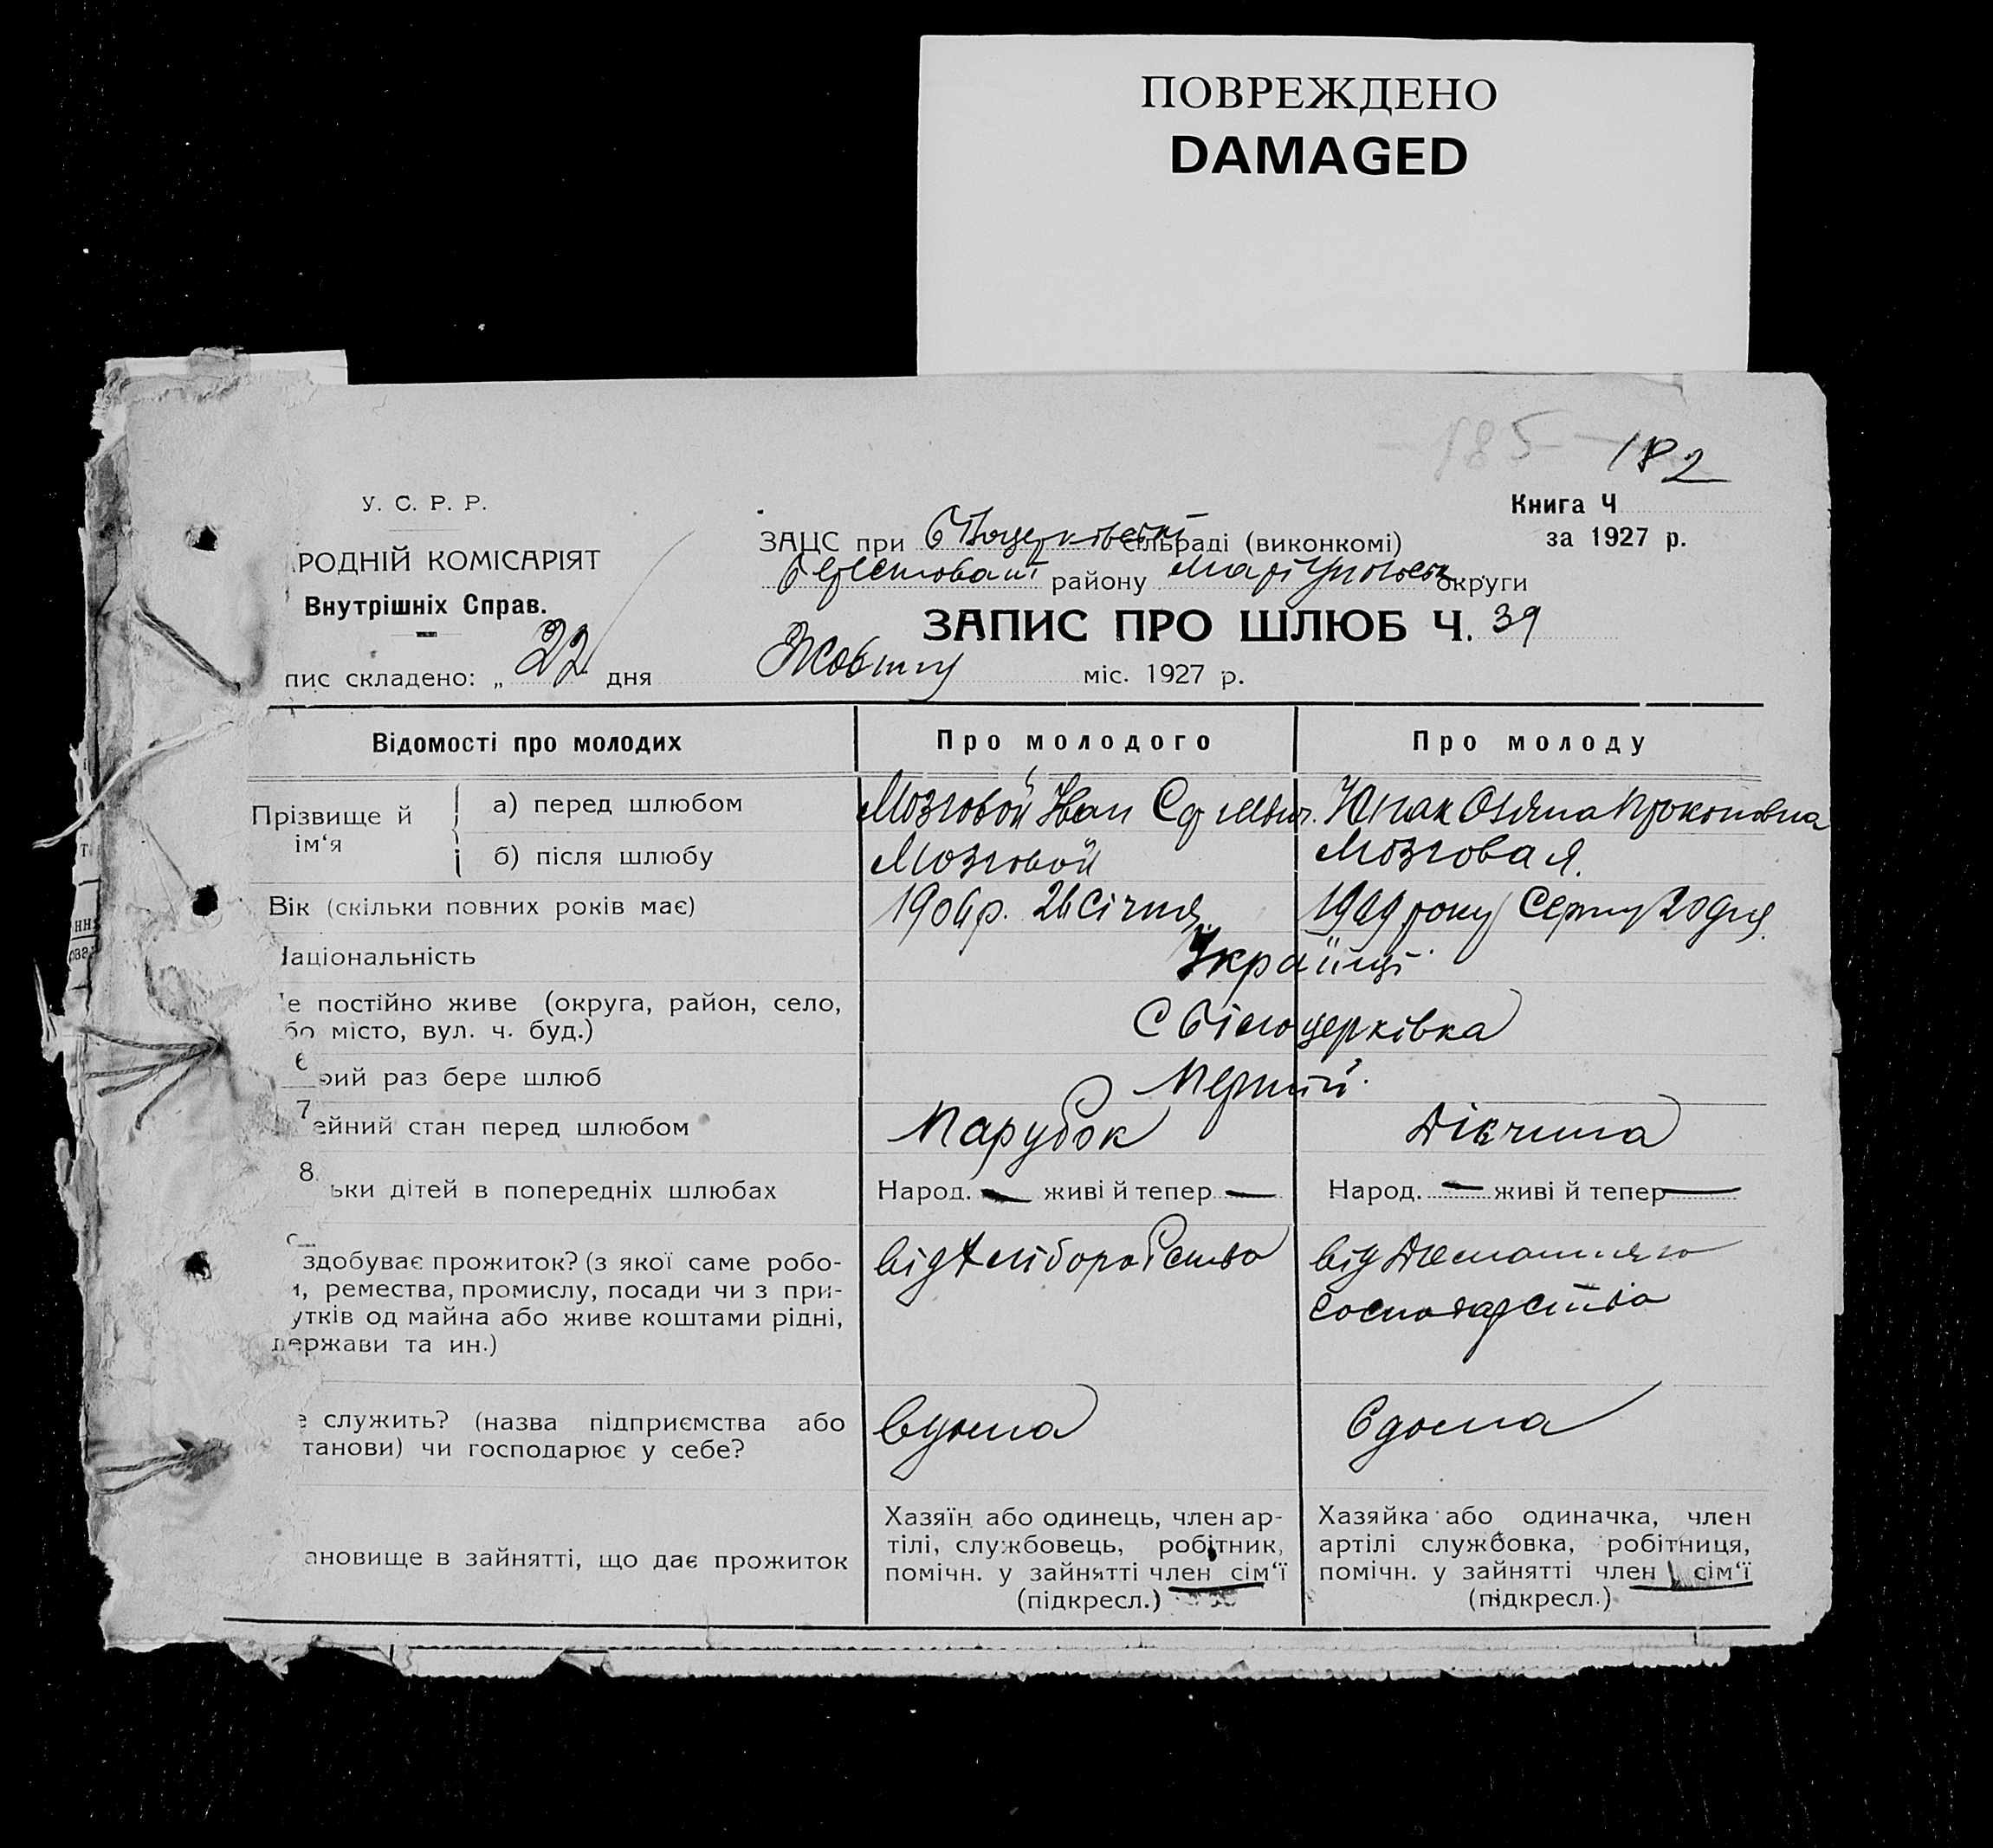 ПОВРЕЖДЕНО
DAMAGED
185
182
У. С. Р. Р.
Книга Ч
ЗАЦС при сільраді (виконкомі)
за 1927 р.
РОДНІЙ КОМІСАРІЯТ
району округи
Внутрішніх Справ.
ЗАПИС ПРО ШЛЮБ Ч. 39
пис складено: „ 22 дня Жовтня міс. 1927 р.
Відомості про молодих
Про молодого
Про молоду
Прізвище й ім‘я
а) перед шлюбом
Мозговой Иван
Юнак Прокоповна
б) після шлюбу
Мозговой
Мозговая.
Вік (скільки повних років має)
1906 р. 26 Січня
1909 року Серпня 20 дня
Національність
Українці
е постійно живе (округа, район, село,
бо місто, вул. ч. буд.)
С Білоцерківка
6
рий раз бере шлюб
Перший
7
ейний стан перед шлюбом
Парубок
Дівчина
8.
ьки дітей в попередніх шлюбах
Народ. — живі й тепер —
Народ. — живі й тепер —
здобуває прожиток? (з якої саме робо-
и, ремества, промислу, посади чи з при-
утків од майна або живе коштами рідні,
держави та ин.)
від хліборобства
від Домашняго
господарства
е служить? (назва підприємства або
танови) чи господарює у себе?
вдома
вдома
ановище в зайнятті, що дає прожиток
Хазяїн або одинець, член ар-
тілі, службовець, робітник,
помічн. у зайнятті член сім‘ї
(підкресл.)
Хазяйка або одиначка, член
артілі службовка, робітниця,
помічн. у зайнятті член сім‘ї
(підкресл.)